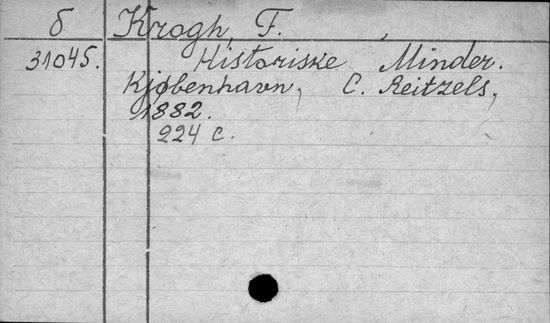 б Krogh, F. ,
31045. Historiske Minder.
Kjøbenhavn, C. Reitzels,
1882.
224 c.